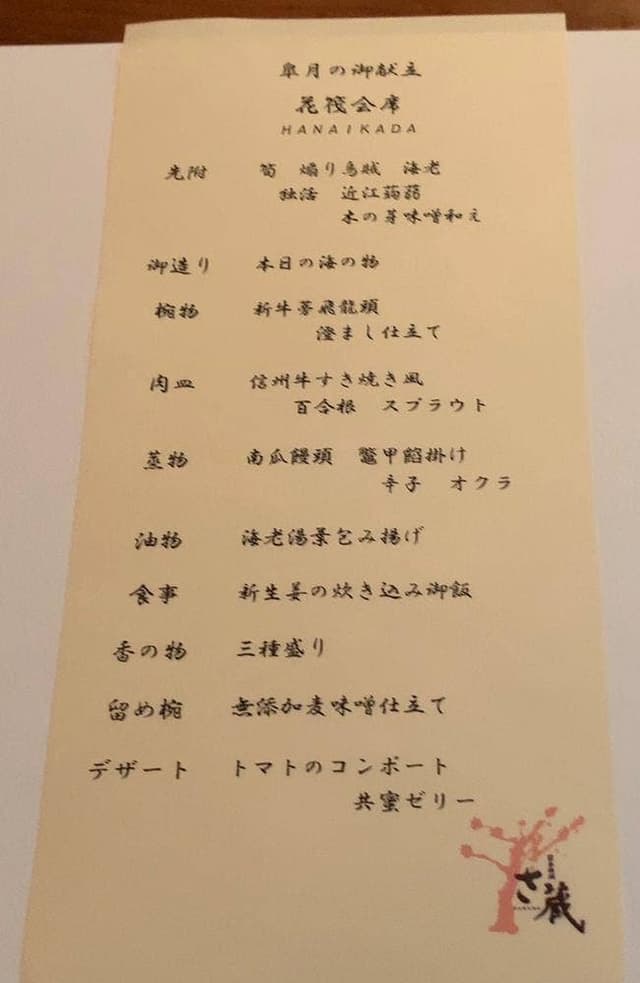 皐月の御献立
花筏会席
HANAIKADA
先附 筍 煽り烏賊 海老
独活 近江蒟蒻
木の芽味噌和え
御造り 本日の海の物
椀物 新牛蒡飛龍頭
澄まし仕立て
肉皿 信州牛すき焼き風
百合根 スプラウト
蒸物 南瓜饅頭 鼈甲餡掛け
辛子 オクラ
油物 海老湯葉包み揚げ
食事 新生姜の炊き込み御飯
香の物 三種盛り
留め椀 無添加麦味噌仕立て
デザート トマトのコンポート
共蜜ゼリー
さ蔵